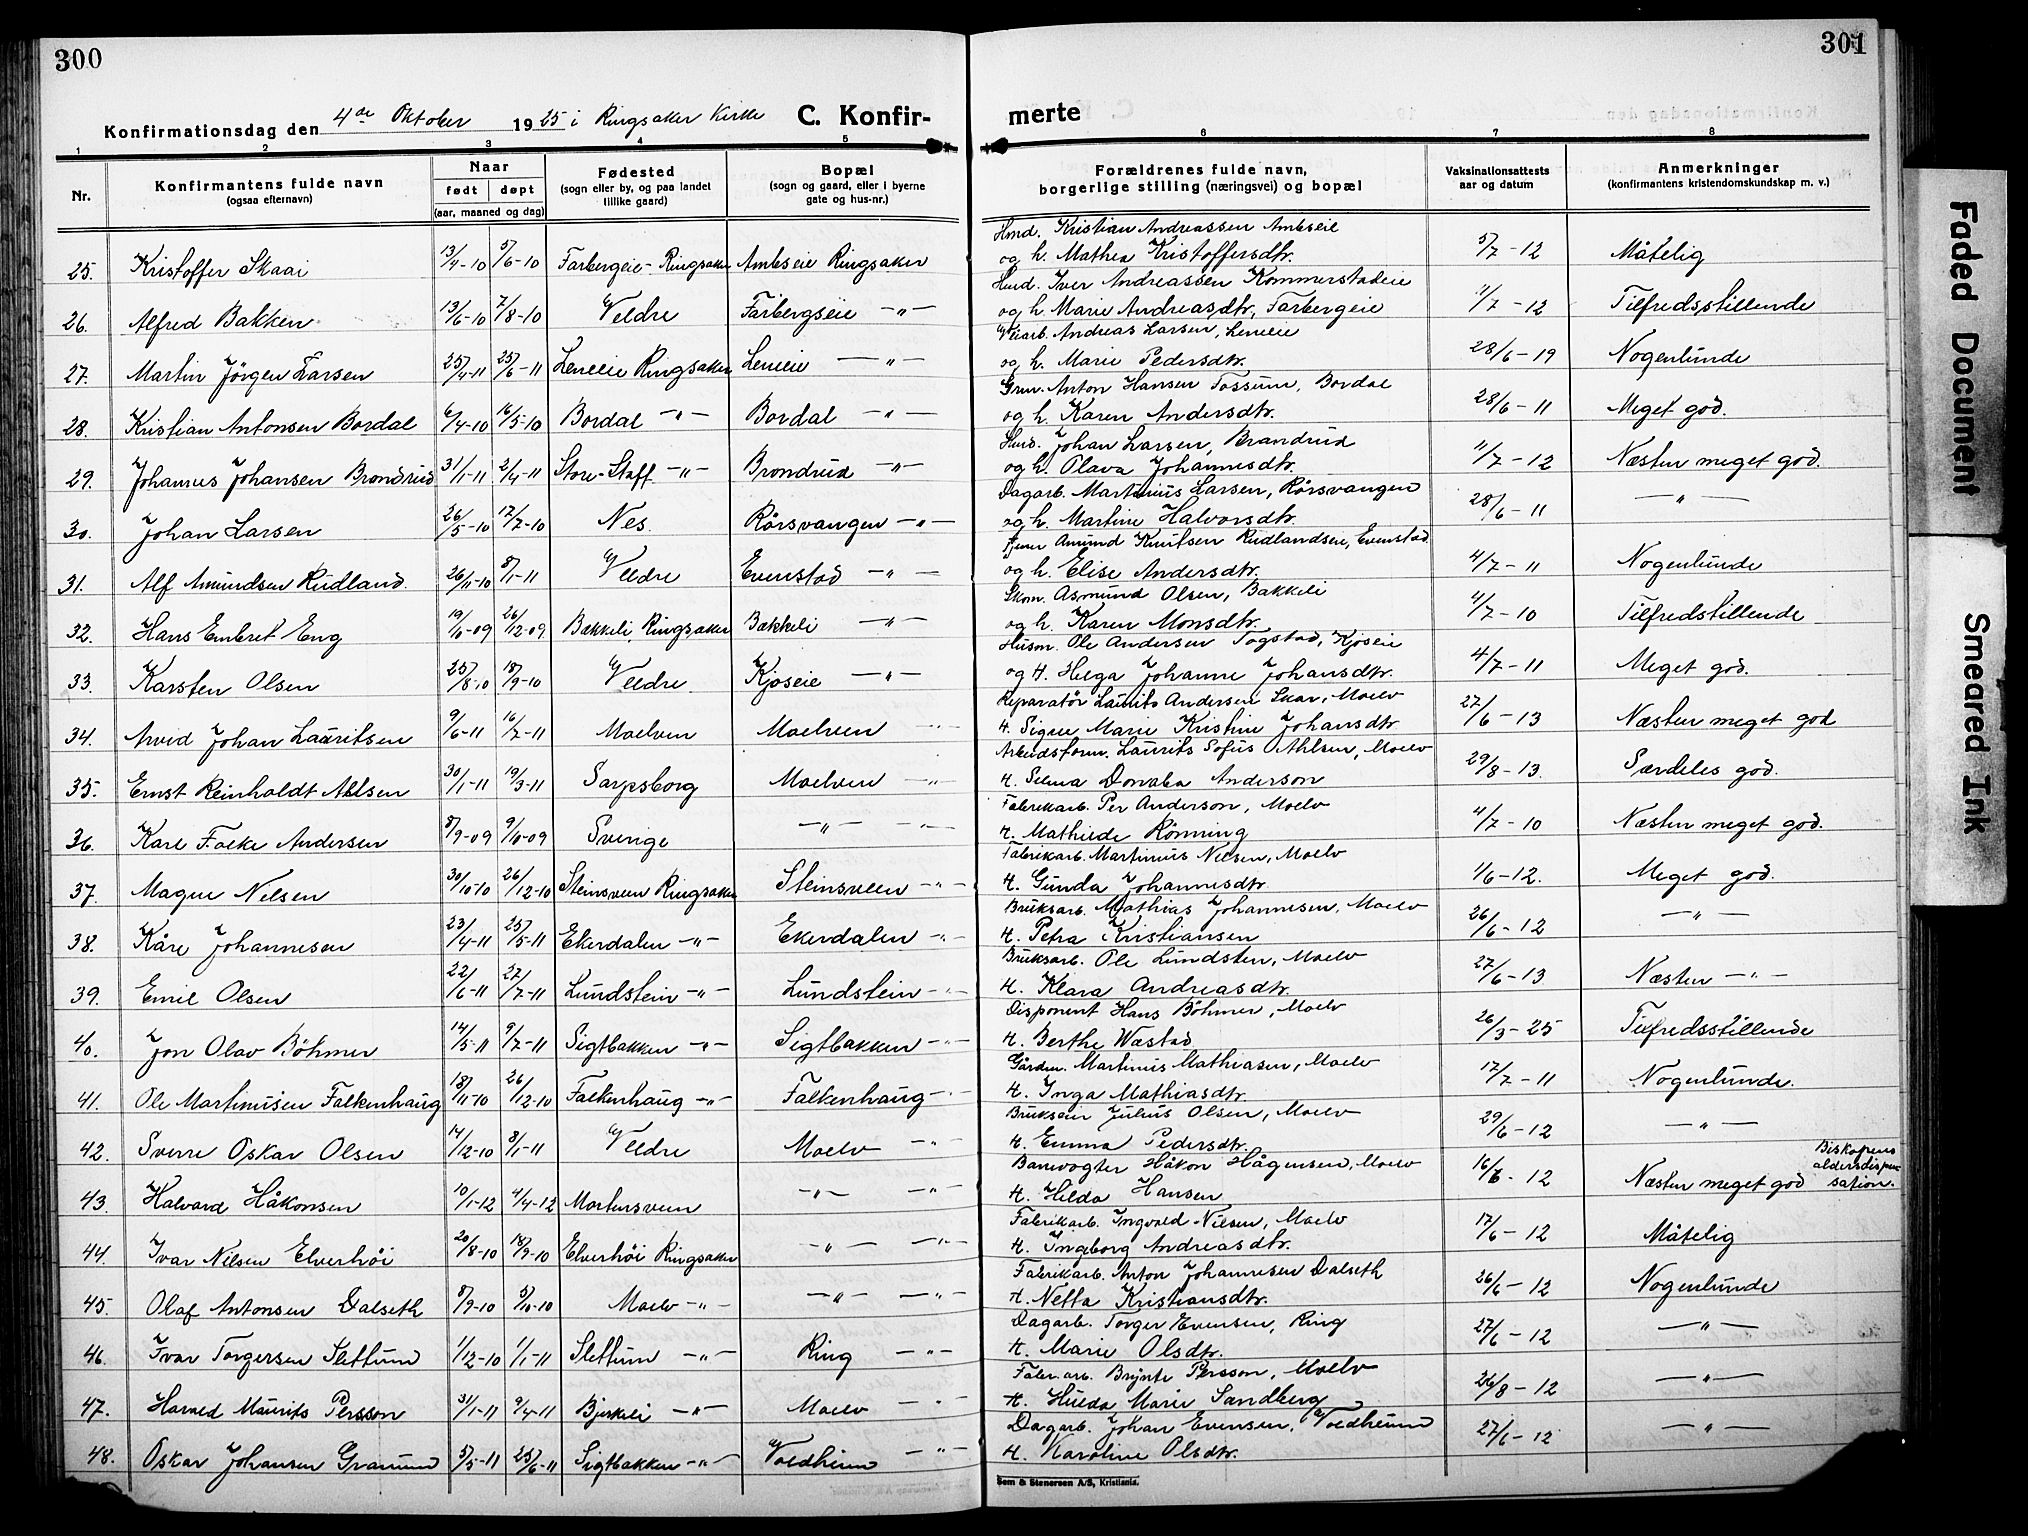 300
301
Konfirmationsdag den 4de Oktober 1925 i Ringsaker Kirke C. Konfir-
merte
1 2 3 4 5 6 7 8
Nr. Konfirmantens fulde navn (ogsaa efternavn) Naar født døpt (aar, maaned og dag) Fødested (sogn eller by, og paa landet tillike gaard) Bopæl (sogn og gaard, eller i byerne gate og hus-nr.) Forældrenes fulde navn, borgerlige stilling (næringsvei) og bopæl Vaksinationsattests aar og datum Anmerkninger (konfirmantens kristendomskundskap m. v.)
Hmd. Kristian Andreassen Ambseie
25. Kristoffer Skaar 13/4-10 5/6-10 Farbergeie-Ringsaker Ambseie Ringsaker og h. Mathea Kristoffersdtr. 5/7-12 Måtelig
Hmd. Iver Andreassen Kommerstadeie
26. Alfred Bakken 13/6-10 7/8-10 Veldre Farbergseie -"- og h. Marie Andreasdtr, Farbergeie 11/7-12 Tilfredsstillende
Veiarb. Andreas Larsen, Leneeie
27. Martin Jörgen Larsen 25/4-11 25/6-11 Leneeie Ringsaker Leneeie -"- og h. Marie Pedersdtr. 28/6-19 Nogenlunde
Grm. Anton Hansen Fossum, Bordal
28. Kristian Antonsen Bordal 6/4-10 16/5-10 Bordal -"- Bordal -"- og h. Karen Andersdtr. 28/6-11 Meget god.
Husb. Johan Larsen, Brandrud
29. Johannes Johansen Brondrud 31/1-11 2/4-11 Store-Staff -"- Brondrud -"- og h. Olava Johannesdtr. 11/7-12 Næsten meget god.
Dagarb. Martinius Larsen, Rörsvangen
30. Johan Larsen 26/5-10 17/7-10 Nes. Rörsvangen -"- og h. Martine Halvorsdtr. 28/6-11 -"-
Amund Knutsen Rudlandseie, Evenstad
31. Alf Amundsen Rudland. 26/11-10 8/1-11 Veldre Evenstad -"- og h. Elise Andersdtr. 4/7-11 Nogenlunde
Skom. Asmund Olsen, Bakkeli
32. Hans Embret Eng 19/6-09 26/12-09 Bakkeli Ringsaker Bakkeli -"- og h. Karen Monsdtr. 4/7-10 Tilfredstillende
Husm. Ole Andersen Togstad, Kjoseie
33. Karsten Olsen 25/8-10 18/9-10 Veldre Kjoseie -"- og H. Helga Johanne Johansdtr. 4/7-11 Meget god.
Reparatör Laurits Andersen Skar, Moelv
34. Arvid Johan Lauritsen 9/6-11 16/7-11 Moelven Moelven -"- H. Signe Marie Kristine Johansdtr 27/6-13 Næsten meget god
Arbeidsform. Laurits Sofus Ahlsen, Moelv
35. Ernst Reinholdt Ahlsen 30/1-11 19/3-11 Sarpsborg Moelven -"- H. Selma Donaba Anderson 29/8-13. Særdeles god.
Fabrikarb. Per Anderson, Moelv
36. Karl Folke Andersen 8/9-09 9/10-09 Sverige -"- -"- H. Mathilde Rönning 4/7-10 Næsten meget god.
Fabrikarb. Martinius Nilsen, Moelv
37. Magne Nilsen 30/10-10 26/12-10 Steinsveen Ringsaker Steinsveen -"- H. Gunda Johannesdtr. 1/6-12. Meget god.
Bruksarb. Mathias Johannesen, Moelv
38. Kåre Johannesen 23/4-11 25/5-11 Ekerdalen -"- Ekerdalen -"- H. Petra Kristiansen 26/6-12 -"-
Bruksarb. Ole Lundsten, Moelv
39. Emil Olsen 22/6-11 27/7-11 Lundstein -"- Lundstein -"- H. Klara Andreasdtr. 27/6-13 Næsten -"-
Disponent Hans Böhmer, Moelv
40. Jon Olav Böhmer 14/5-11 9/7-11 Sigtbakken -"- Sigtbakken -"- H. Berthe Wæstad 26/3-25 Tilfredsstillende
Gårdm. Martinus Mathiasen, Moelv
41. Ole Martinusen Falkenhaug 18/11-10 26/12-10 Falkenhaug -"- Falkenhaug -"- H. Inga Mathiasdtr. 17/7-11 Nogenlunde.
Brukseier Julius Olsen, Moelv
42. Sverre Oskar Olsen 14/12-10 8/1-11 Veldre Moelv -"- H. Emma Pedersdtr. 29/6-12 -"-
Banevogter Håkon Hågensen, Moelv
43. Halvard Håkonsen 10/1-12 4/4-12 Mortensveen -"- -"- H. Hilda Hansen 16/6-12 Næsten meget god Biskopens aldersdispensation.
Fabrikarb. Ingvald Nilsen, Moelv
44. Ivar Nilsen Elverhöi 20/8-10 18/9-10 Elverhöi Ringsaker -"- -"- H. Ingeborg Andreasdtr. 17/6-12 Måtelig
Fabrikarb. Anton Johannesen Dalseth
45. Olaf Antonsen Dalseth 8/9-10 9/10-10 Moelv -"- -"- -"- H. Netta Kristiansdtr. 26/6-12 Nogenlunde
Dagarb. Torger Evensen, Ring
46. Ivar Torgersen Slettum 1/12-10 1/1-11 Slettum -"- Ring -"- H. Marie Olsdtr. 27/6-12 -"-
Fabr.arb. Brynte Persson, Moelv
47. Harald Maurits Persson 31/1-11 9/4-11 Bjerkeli -"- Moelv -"- H. Hulda Marie Sandberg 26/8-12 -"-
Dagarb. Johan Evensen, Voldheim
48. Oskar Johansen Granund 5/5-11 25/6-11 Sigtbakken -"- Voldheim -"- H. Karoline Olsdtr. 27/6-12 -"-
Sem & Stenersen A/S, Kristiania.
Faded Document
Smeared Ink